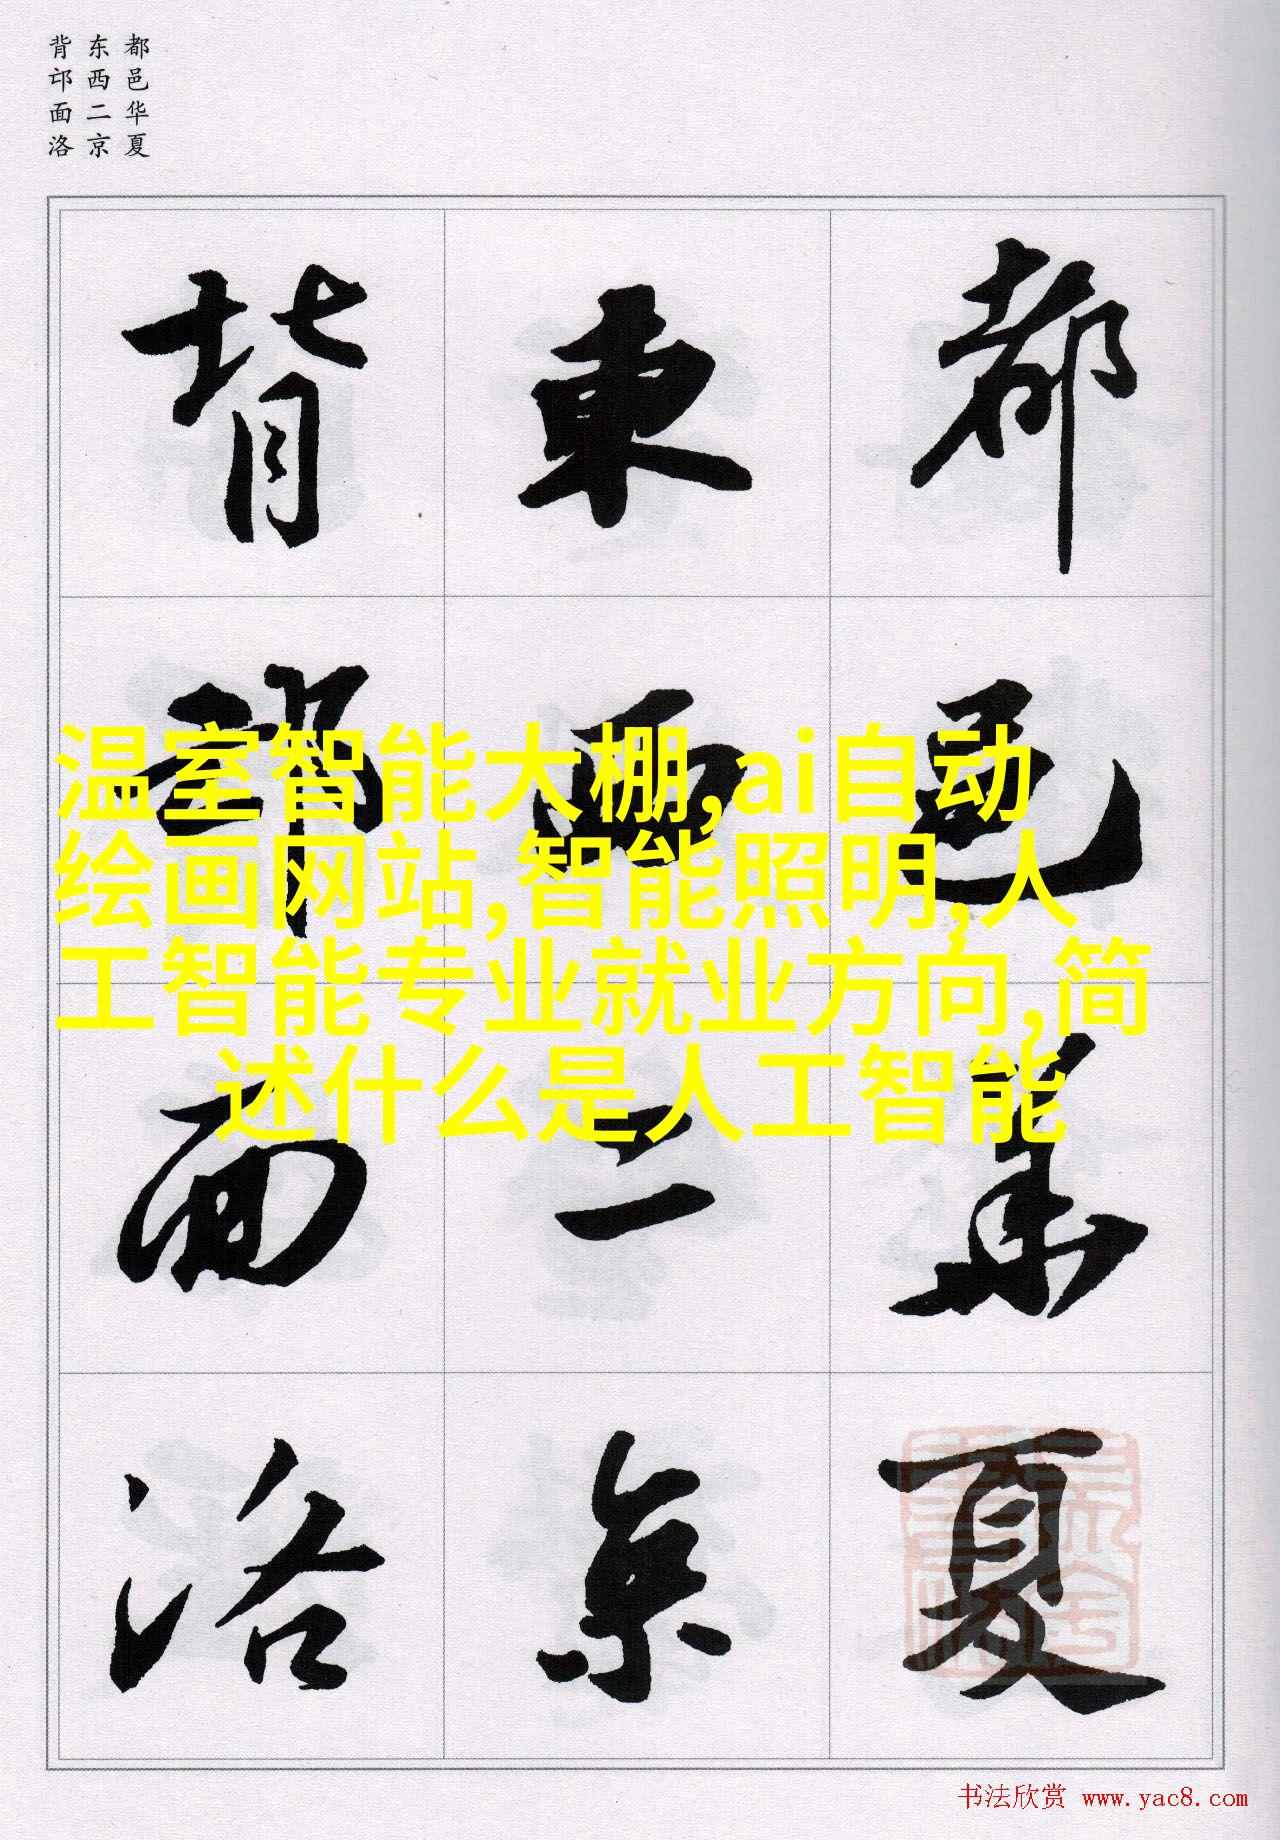 都邑华夏
东西二京
背邙面洛
都邑華夏
東西二京
背邙面洛
温室智能大棚,ai自动
绘画网站,智能照明,人
工智能专业就业方向,简
述什么是人工智能
书法欣赏 www.yac8.com